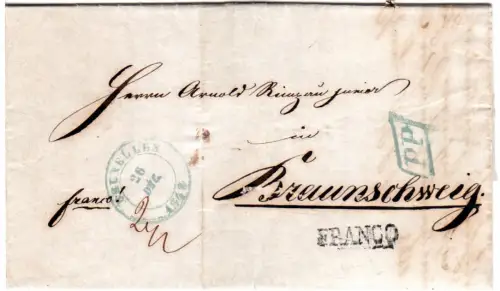 Herrn Arnold Rimpau junior
in
Braunschweig.
franco
BRUXELLES
26
DEC.
1848
PP
FRANCO